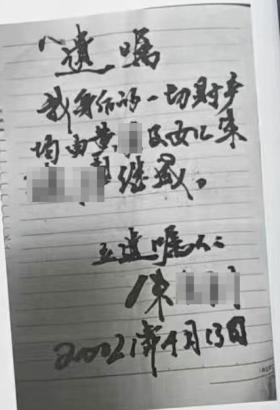 遗嘱
我身后的一切财产
均由黄 及女儿
继承。
立遗嘱人:
陈
2021年4月13日